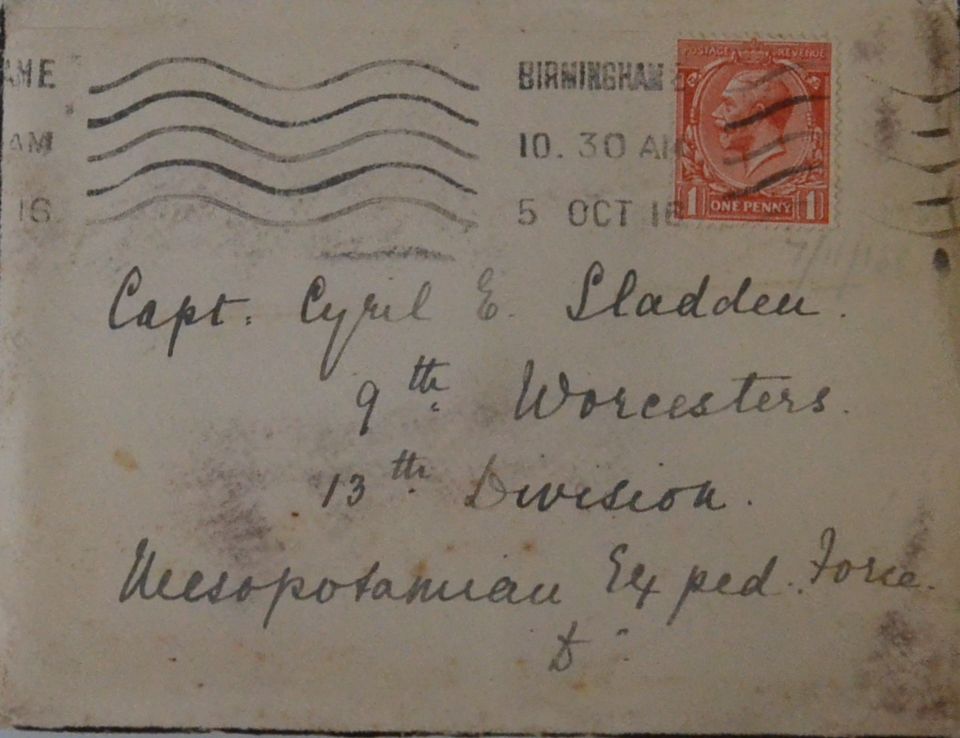 BIRMINGHAM
10. 30 AM
5 OCT 16
POSTAGE REVENUE
1 ONE PENNY 1
AM
16
Capt. Cyril E. Sladden.
9th. Worcesters.
13th. Division.
Mesopotamian Exped. Force.
D